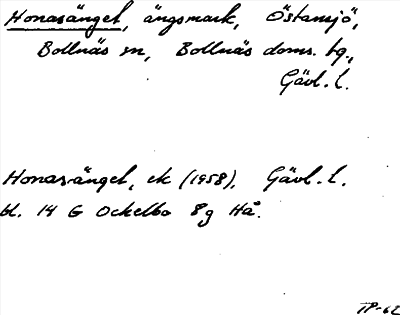 Honasänget, ängsmark, Östansjö,
Bollnäs sn, Bollnäs doms. tg.,
Gävl. l.
Honasänget, ek (1958), Gävl. l.
bl. 14 G Ockelbo 8g Hå.
TP-62